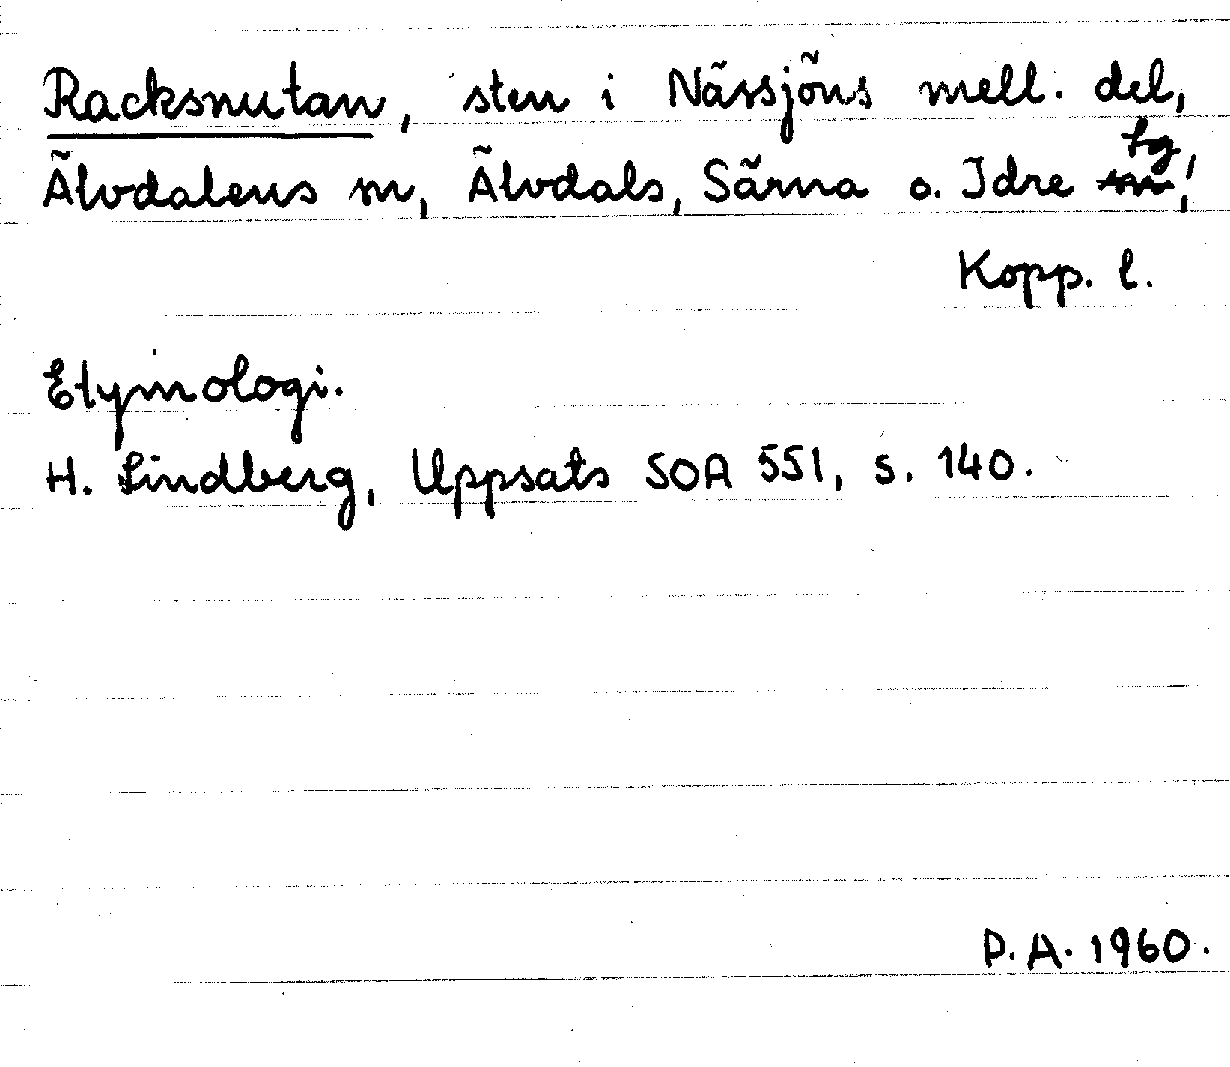 Racksnutan, sten i Nässjöns mell. del,
Älvdalens m, Älvdals, Särna o. Idre tg,
Kopp. l.
Etymologi.
H. Lindberg, Uppsats SOA 551, s. 140.
D.A. 1960.